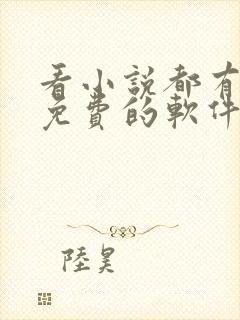 看小説都有
免費的軟件
陸昊